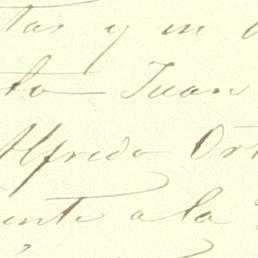 tas y en
to Juan
Alfredo Ort
ente a la